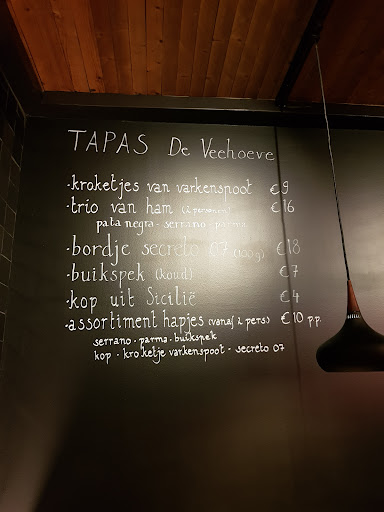 TAPAS De Veehoeve
·kroketjes van varkenspoot €9
·trio van ham (2 personen) €16
pata negra - serrano - parma
·bordje secreto 07 (100g) €18
·buikspek (koud) €7
·kop uit Sicilië €4
·assortiment hapjes (vanaf 2 pers) €10 p.p.
serrano - parma - buikspek
kop - kroketje varkenspoot - secreto 07